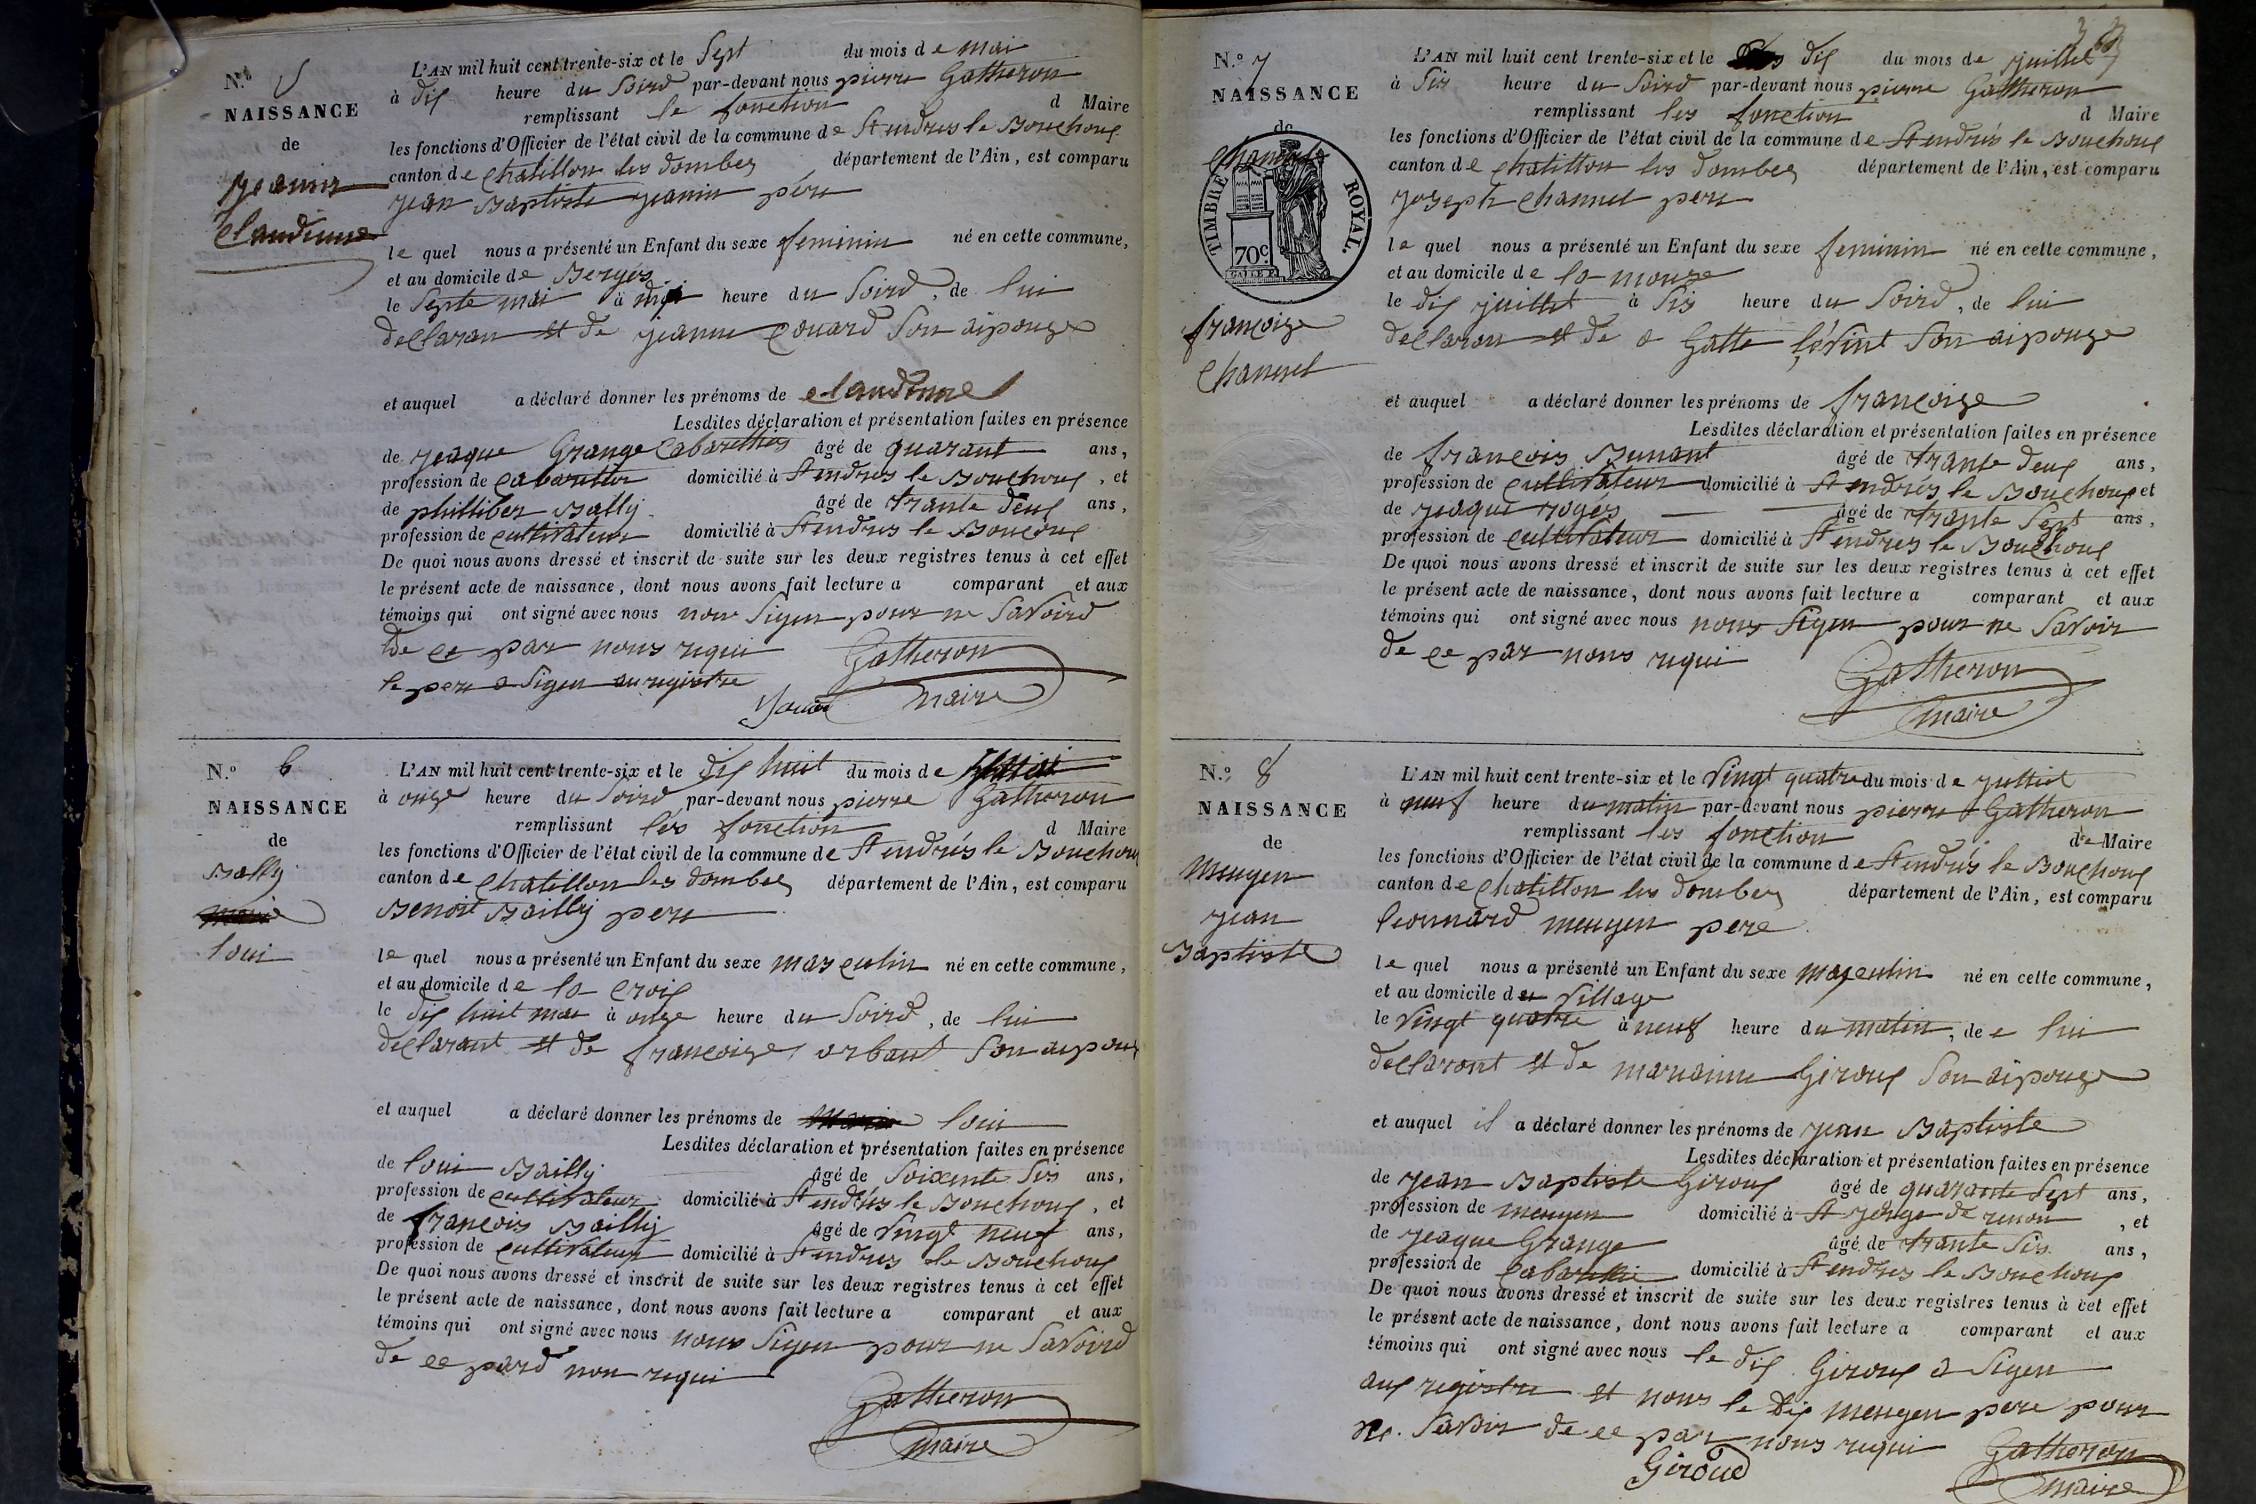 N.º 5
NAISSANCE
de
jeanin
claudinne
L'AN mil huit cent trente-six et le Sept du mois de mai
à dix heure du Soird par-devant nous pierre Gatheron
remplissant le fonction d Maire
les fonctions d'Officier de l'état civil de la commune de St endrés le Bouchoux
canton de Chatillon les dombes département de l'Ain, est comparu
jean Baptiste jeanin pére
le quel nous a présenté un Enfant du sexe feminin né en cette commune,
et au domicile de Bergés
le Septe mai à heure du Soird, de lui
declaran et de jeanne Couard Son aipouze
et auquel a déclaré donner les prénoms de claudinne
Lesdites déclaration et présentation faites en présence
de jeaque Grange Cabarettier âgé de quarant ans,
profession de Cabarettier domicilié à St endrés le Bouchoux, et
de philliber Bally âgé de trante deux ans,
profession de cultivateur domicilié à St endres le Boucoux
De quoi nous avons dressé et inscrit de suite sur les deux registres tenus à cet effet
le présent acte de naissance, dont nous avons fait lecture a comparant et aux
témoins qui ont signé avec nous non Sigen pour ne Savoird
de ce par nous requi Gatheron
le pere a Sigen au registre
maire
N.º 6
NAISSANCE
de
Bally
loui
L'AN mil huit cent trente-six et le dix huit du mois de
à onze heure du Soird par-devant nous pierre Gatheron
remplissant lés fonction d Maire
les fonctions d'Officier de l'état civil de la commune de St endrés le Bouchoux
canton de Chatillon les dombes département de l'Ain, est comparu
Benoit Bailly pere
le quel nous a présenté un Enfant du sexe masculin né en cette commune,
et au domicile de la Croix
le dix huit mai à onze heure du Soird, de lui
declarant et de francoize urbant Son aipouz
et auquel a déclaré donner les prénoms de loui
Lesdites déclaration et présentation faites en présence
de loui Bailly âgé de Soixente Sis ans,
profession de cultivateur domicilié à St endrés le Bouchoux, et
de francois Bailly âgé de Vingt neuf ans,
profession de cultivateur domicilié à St endres le Bouchoux
De quoi nous avons dressé et inscrit de suite sur les deux registres tenus à cet effet
le présent acte de naissance, dont nous avons fait lecture a comparant et aux
témoins qui ont signé avec nous nous Sigen pour ne Savoird
de ce pard non requi
Gatheron
maire
N.º 7
NAISSANCE
de
TIMBRE ROYAL.
70c.
françoize
Channel
L'AN mil huit cent trente-six et le dix du mois de juillet
à Sis heure du Soird par-devant nous pierre Gatheron
remplissant les fonction d Maire
les fonctions d'Officier de l'état civil de la commune de St endrés le Bouchoux
canton de Chatillon les dombes département de l'Ain, est comparu
joseph Channel pere
le quel nous a présenté un Enfant du sexe feminin né en cette commune,
et au domicile de la mouze
le dix juillet à Sis heure du Soird, de lui
declaran et de a Gatte Son aipouze
et auquel a déclaré donner les prénoms de françoize
Lesdites déclaration et présentation faites en présence
de francois Bunant âgé de trante deux ans,
profession de cultivateur domicilié à St endrés le Bouchoux et
de jeaque rogés âgé de trante Sept ans,
profession de cultivateur domicilié à St endres le Bouchoux
De quoi nous avons dressé et inscrit de suite sur les deux registres tenus à cet effet
le présent acte de naissance, dont nous avons fait lecture a comparant et aux
témoins qui ont signé avec nous nous Sigen pour ne Savoir
de ce par nous requi
Gatheron
maire
N.º 8
NAISSANCE
de
meugen
jean
Baptiste
L'AN mil huit cent trente-six et le Vingt quatre du mois de julliet
à neuf heure du matin par-devant nous pierre Gatheron
remplissant les fonction de Maire
les fonctions d'Officier de l'état civil de la commune de St endrés le Bouchoux
canton de Chatillon les dombes département de l'Ain, est comparu
leonnard meugen pere
le quel nous a présenté un Enfant du sexe masculin né en cette commune,
et au domicile du Village
le Vingt quatre à neuf heure du matin, de lui
declarant et de marianne Giroux Son aipouze
et auquel il a déclaré donner les prénoms de jean Baptiste
Lesdites déclaration et présentation faites en présence
de jean Baptiste Giroux âgé de quarante Sept ans,
profession de meugen domicilié à St de renon, et
de jeaque Grange âgé de trante Sis ans,
profession de Cabarettie domicilié à St endres le Bouchoux
De quoi nous avons dressé et inscrit de suite sur les deux registres tenus à cet effet
le présent acte de naissance, dont nous avons fait lecture a comparant et aux
témoins qui ont signé avec nous le dix Giroux a Sigen
aux registre et nous le dix meugen pere pour
ne Savoir de ce par nous requi Gatheron
Giroud maire